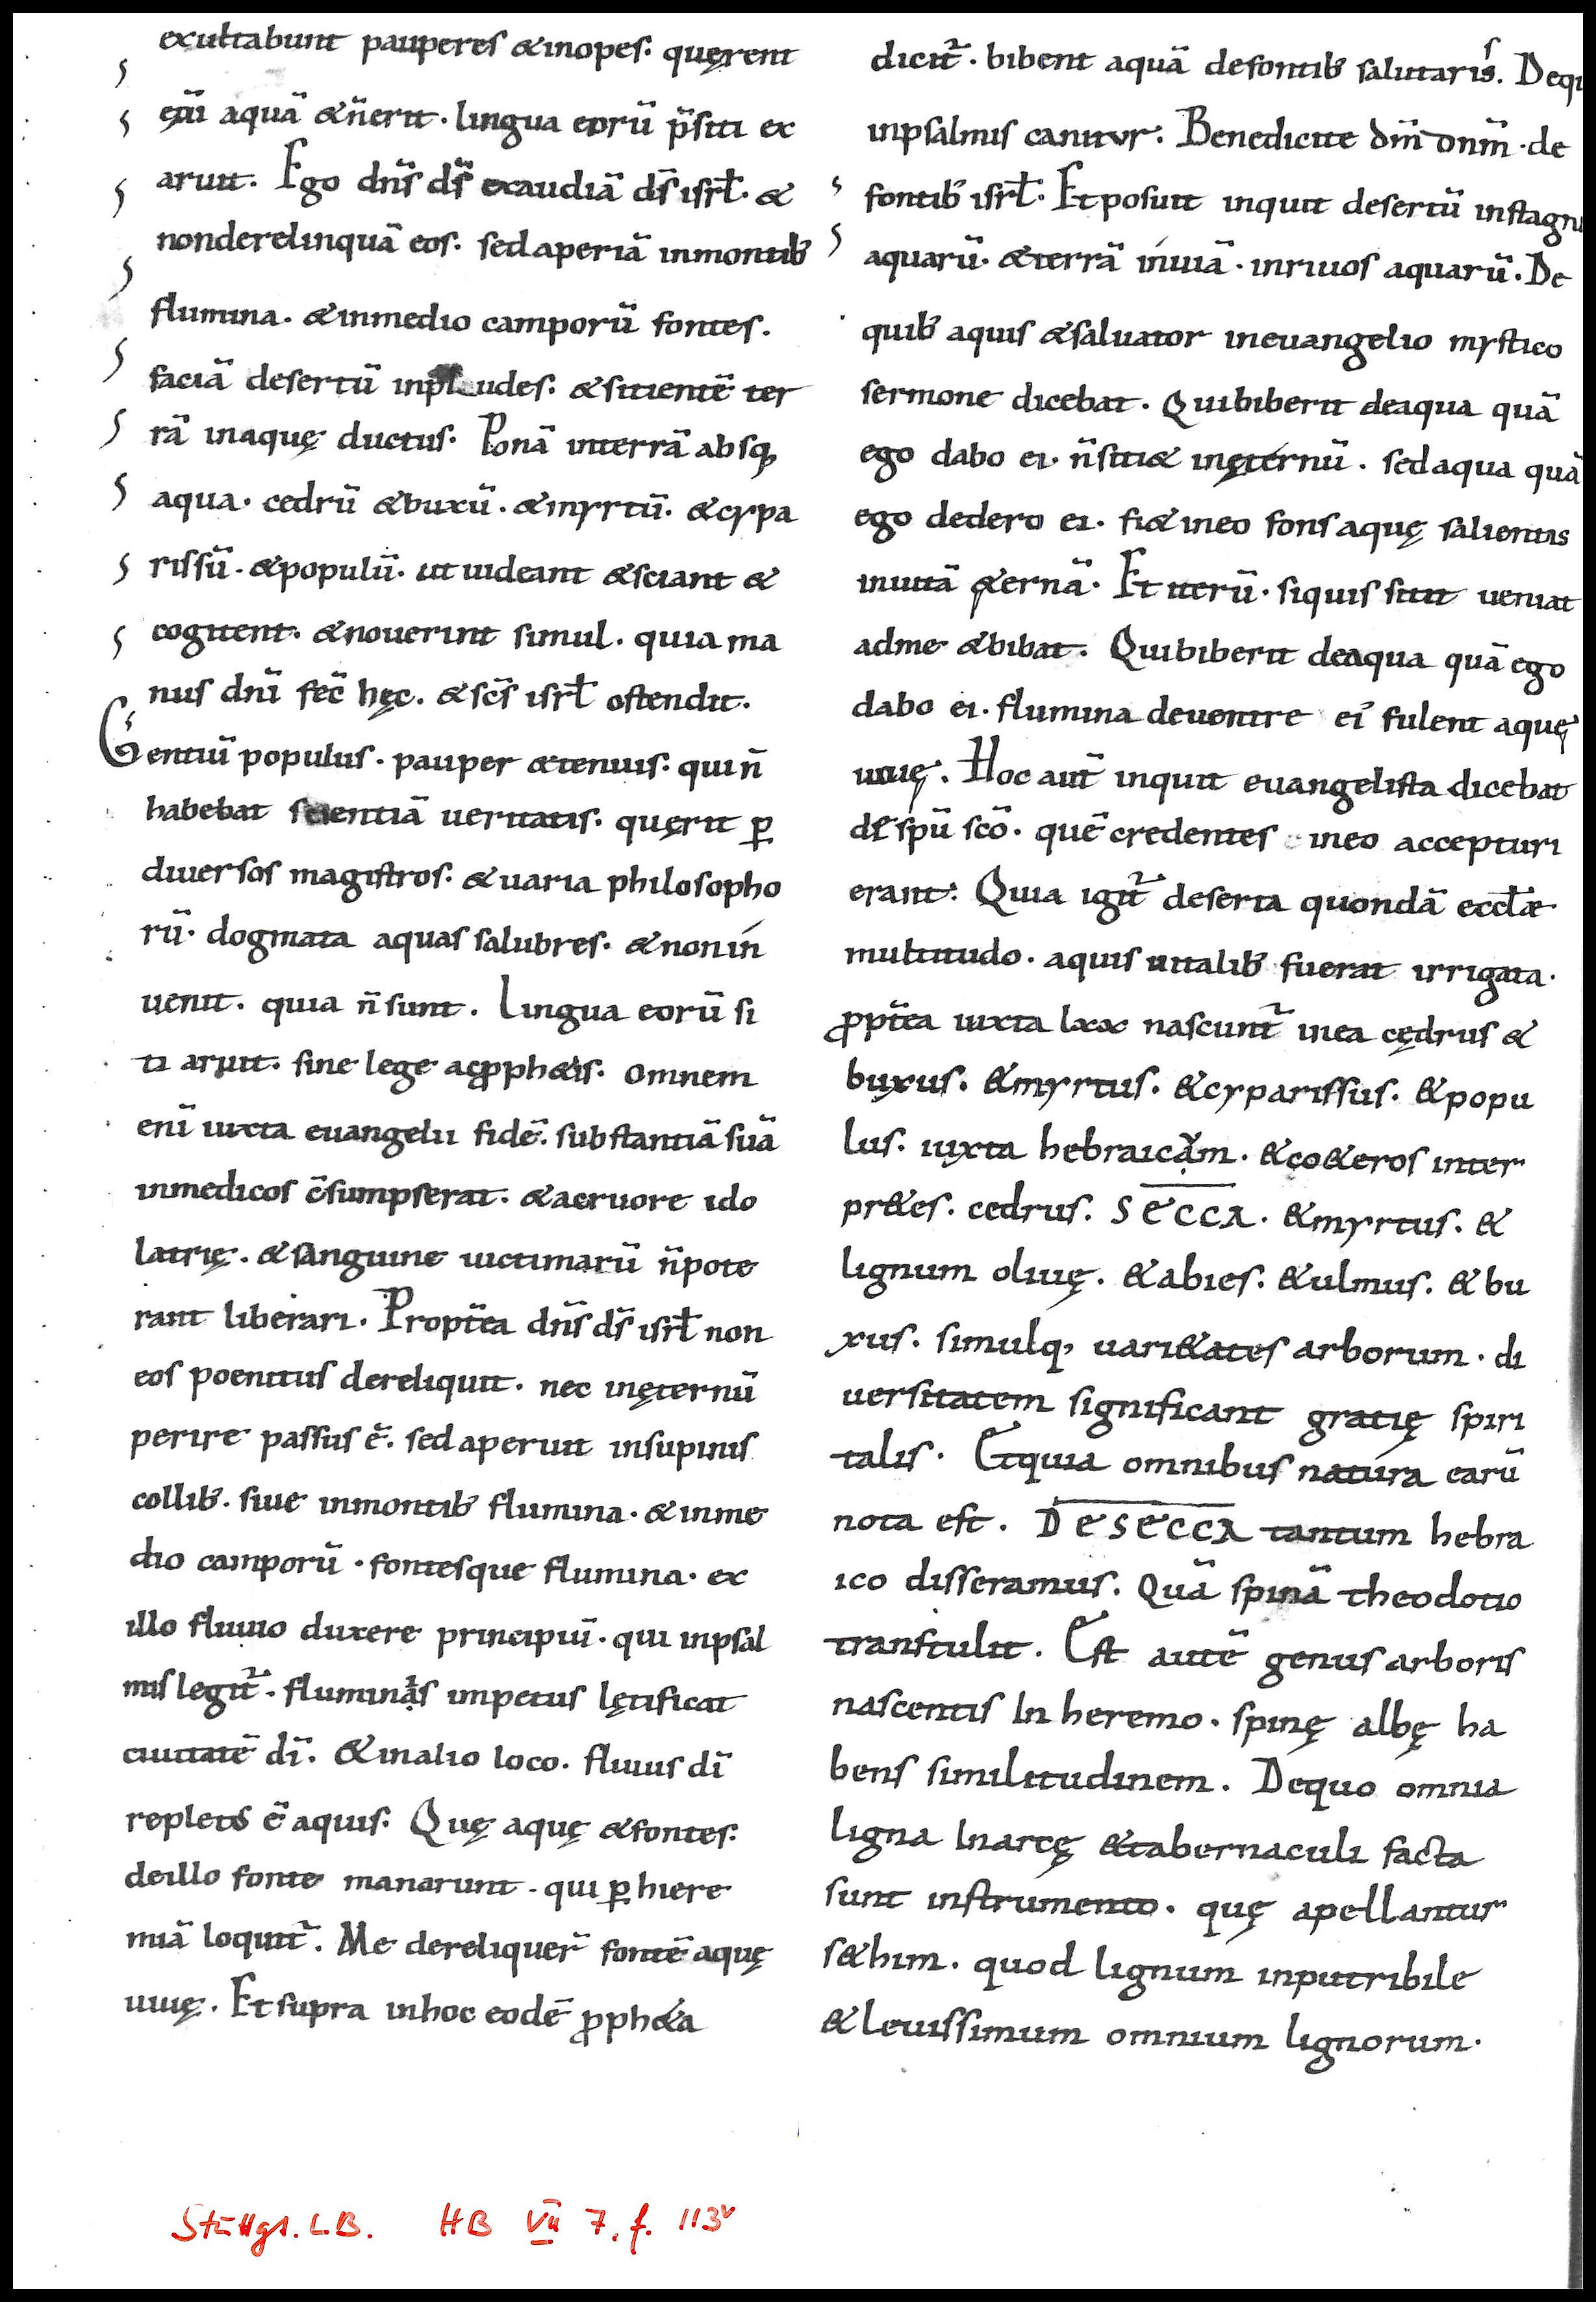 exultabunt pauperes & inopes. quęrent
enī aquā & ñ erit. lingua eorū p̄ siti ex
aruit. Ego dn̄s ds̄ exaudiā ds̄ isrł. &
nonderelinquā eos. sed aperiā inmontib;
flumina. & inmedio camporū fontes.
faciā desertū inpaludes. & sitientē ter
rā inaquę ductus. Ponā interrā absq;
aqua. cedrū & buxū. & myrtū. & cypa
rissū. & populū. ut uideant & sciant &
cogitent. & nouerint simul. quia ma
nus dnī fec̄ hęc. & sc̄s isrł ostendit.
Gentiū populus. pauper & tenuis. qui ñ
habebat scientiā ueritatis. quęrit ꝑ
diuersos magistros. & uaria philosopho
rū. dogmata aquas salubres. & non in
uenit. quia ñ sunt. Lingua eorū si
ti aruit. sine lege ac ꝓph&is. omnem
enī iuxta euangelii fidē. substantiā suā
inmedicos c̄sumpserat. & a cruore ido
latrię. & sanguine uictimarū ñ pote
rant liberari. Propt̄ea dn̄s ds̄ isrł non
eos poenitus dereliquit. nec inęternū
perire passus ē. sed aperuit insupinis
collib;. siue inmontib; flumina. & inme
dio camporū. fontesque flumina. ex
illo fluuio duxere principiū. qui inpsal
mis legit̄. fluminis impetus lętificat
ciuitatē dī. & inalio loco. fluuius dī
repletus ē aquis. Quę aquę & fontes.
deillo fonte manarunt. qui ꝑ hiere
miā loquit̄. Me dereliquer̄ fontē aquę
uiuę. Et supra inhoc eodē ꝓph&a
dicit̄. bibent aquā defontib; salutaris. Dequi
inpsalmis canitur. Benedicite dm̄ dnm̄. de
fontib; isrł. Et posuit inquit desertū instagnū
aquarū. & terrā inuiā. inriuos aquarū. De
quib; aquis & saluator ineuangelio mystico
sermone dicebat. Qui biberit deaqua quā
ego dabo ei. ñ siti& inęternū. sed aqua quā
ego dedero ei. fi& ineo fons aquę salientis
inuitā ę&ernā. Et iterū. siquis sitit ueniat
adme & bibat. Qui biberit deaqua quā ego
dabo ei. flumina deuentre ei' fulent aquę
uiuę. Hoc aut̄ inquit euangelista dicebat
de spū scō. quē credentes ineo accepturi
erant. Quia igit̄ deserta quondā eccłæ
multitudo. aquis uitalib; fuerat irrigata.
ꝓpt̄ea iuxta lxx nascunt̄ inea cędrus &
buxus. & myrtus. & cyparissus. & popu
lus. iuxta hebraicam. & co&eros inter
pr&es. cedrus. SECCA. & myrtus. &
lignum oliuę. & abies. & ulmus. & bu
xus. simulq; uari&ates arborum. di
uersitatem significant gratię spiri
talis. Et quia omnibus natura earū
nota est. DE SECCA tantum hebra
ico disseramus. Quā spinā theodotio
transtulit. Est autē genus arboris
nascentis In heremo. spinę albę ha
bens similitudinem. Dequo omnia
ligna In arcę & tabernaculi facta
sunt instrumento. quę apellantur
s&him. quod lignum inputribile
& leuissimum omnium lignorum.
Stuttgt. L.B. HB VII 7, f. 113v